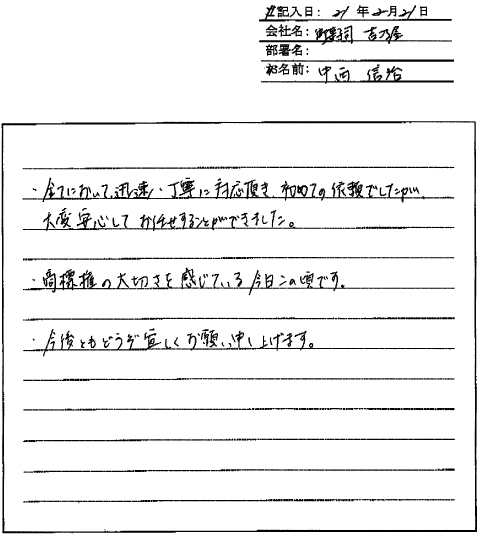 ご記入日: 21 年 2月21日
会社名: 寿司 吉乃屋
部署名:
お名前: 中西 信治
・全てにおいて、迅速・丁寧に対応頂き、初めての依頼でしたが、
大変安心してお任せすることができました。
・商標権の大切さを感じている今日この頃です。
・今後ともどうぞ宜しくお願い申し上げます。